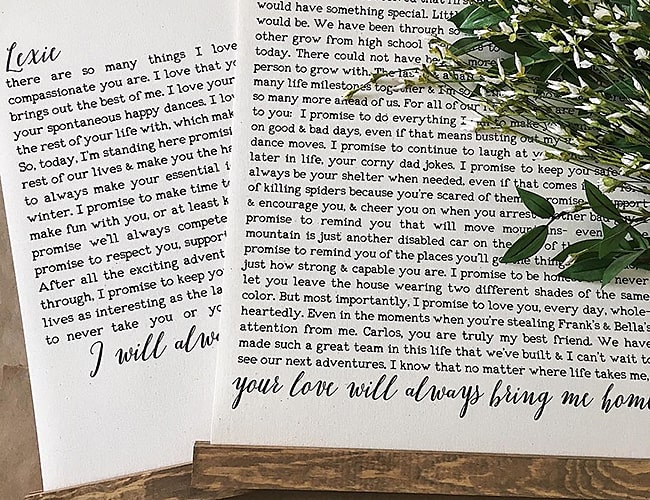 Lexie
there are so many things I love
compassionate you are. I love that yo
brings out the best of me. I love your
your spontaneous happy dances. I lov
the rest of your life with, which mak
So, today, I'm standing here promisi
rest of our lives & make you the ha
to always make your essential
winter. I promise to make time t
make fun with you, or at least k
promise we'll always compete
promise to respect you, support
After all the exciting advent
through, I promise to keep you
lives as interesting as the la
to never take you or yo
I will alwa
would have something special. Littl
would be. We have been through so
other grow from high school
today. There could not have more
person to grow with. The last
many life milestones together & I'm so
so many more ahead of us. For all of our are
to you: I promise to do everything I to make you
on good & bad days, even if that means busting out my
dance moves. I promise to continue to laugh at y
later in life, your corny dad jokes. I promise to keep you safe
always be your shelter when needed, even if that comes
of killing spiders because you're scared of them. I promise support
& encourage you, & cheer you on when you arrest another bad guy
promise to remind you that will move mountains- even
mountain is just another disabled car on the of the
promise to remind you of the places you'll go things
just how strong & capable you are. I promise to be honest never
let you leave the house wearing two different shades of the same
color. But most importantly, I promise to love you, every day, whole-
heartedly. Even in the moments when you're stealing Frank's & Bella's
attention from me. Carlos, you are truly my best friend. We have
made such a great team in this life that we've built & I can't wait to
see our next adventures. I know that no matter where life takes me,
your love will always bring me home